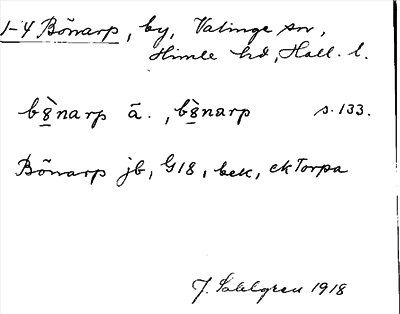 1-4 Bönarp, by, Valinge sn,
Himle hd, Hall. l.
b8̀narp ā., b8̀narp s. 133.
Bönarp jb, G18, bek, ekTorpa
J. Sahlgren 1918